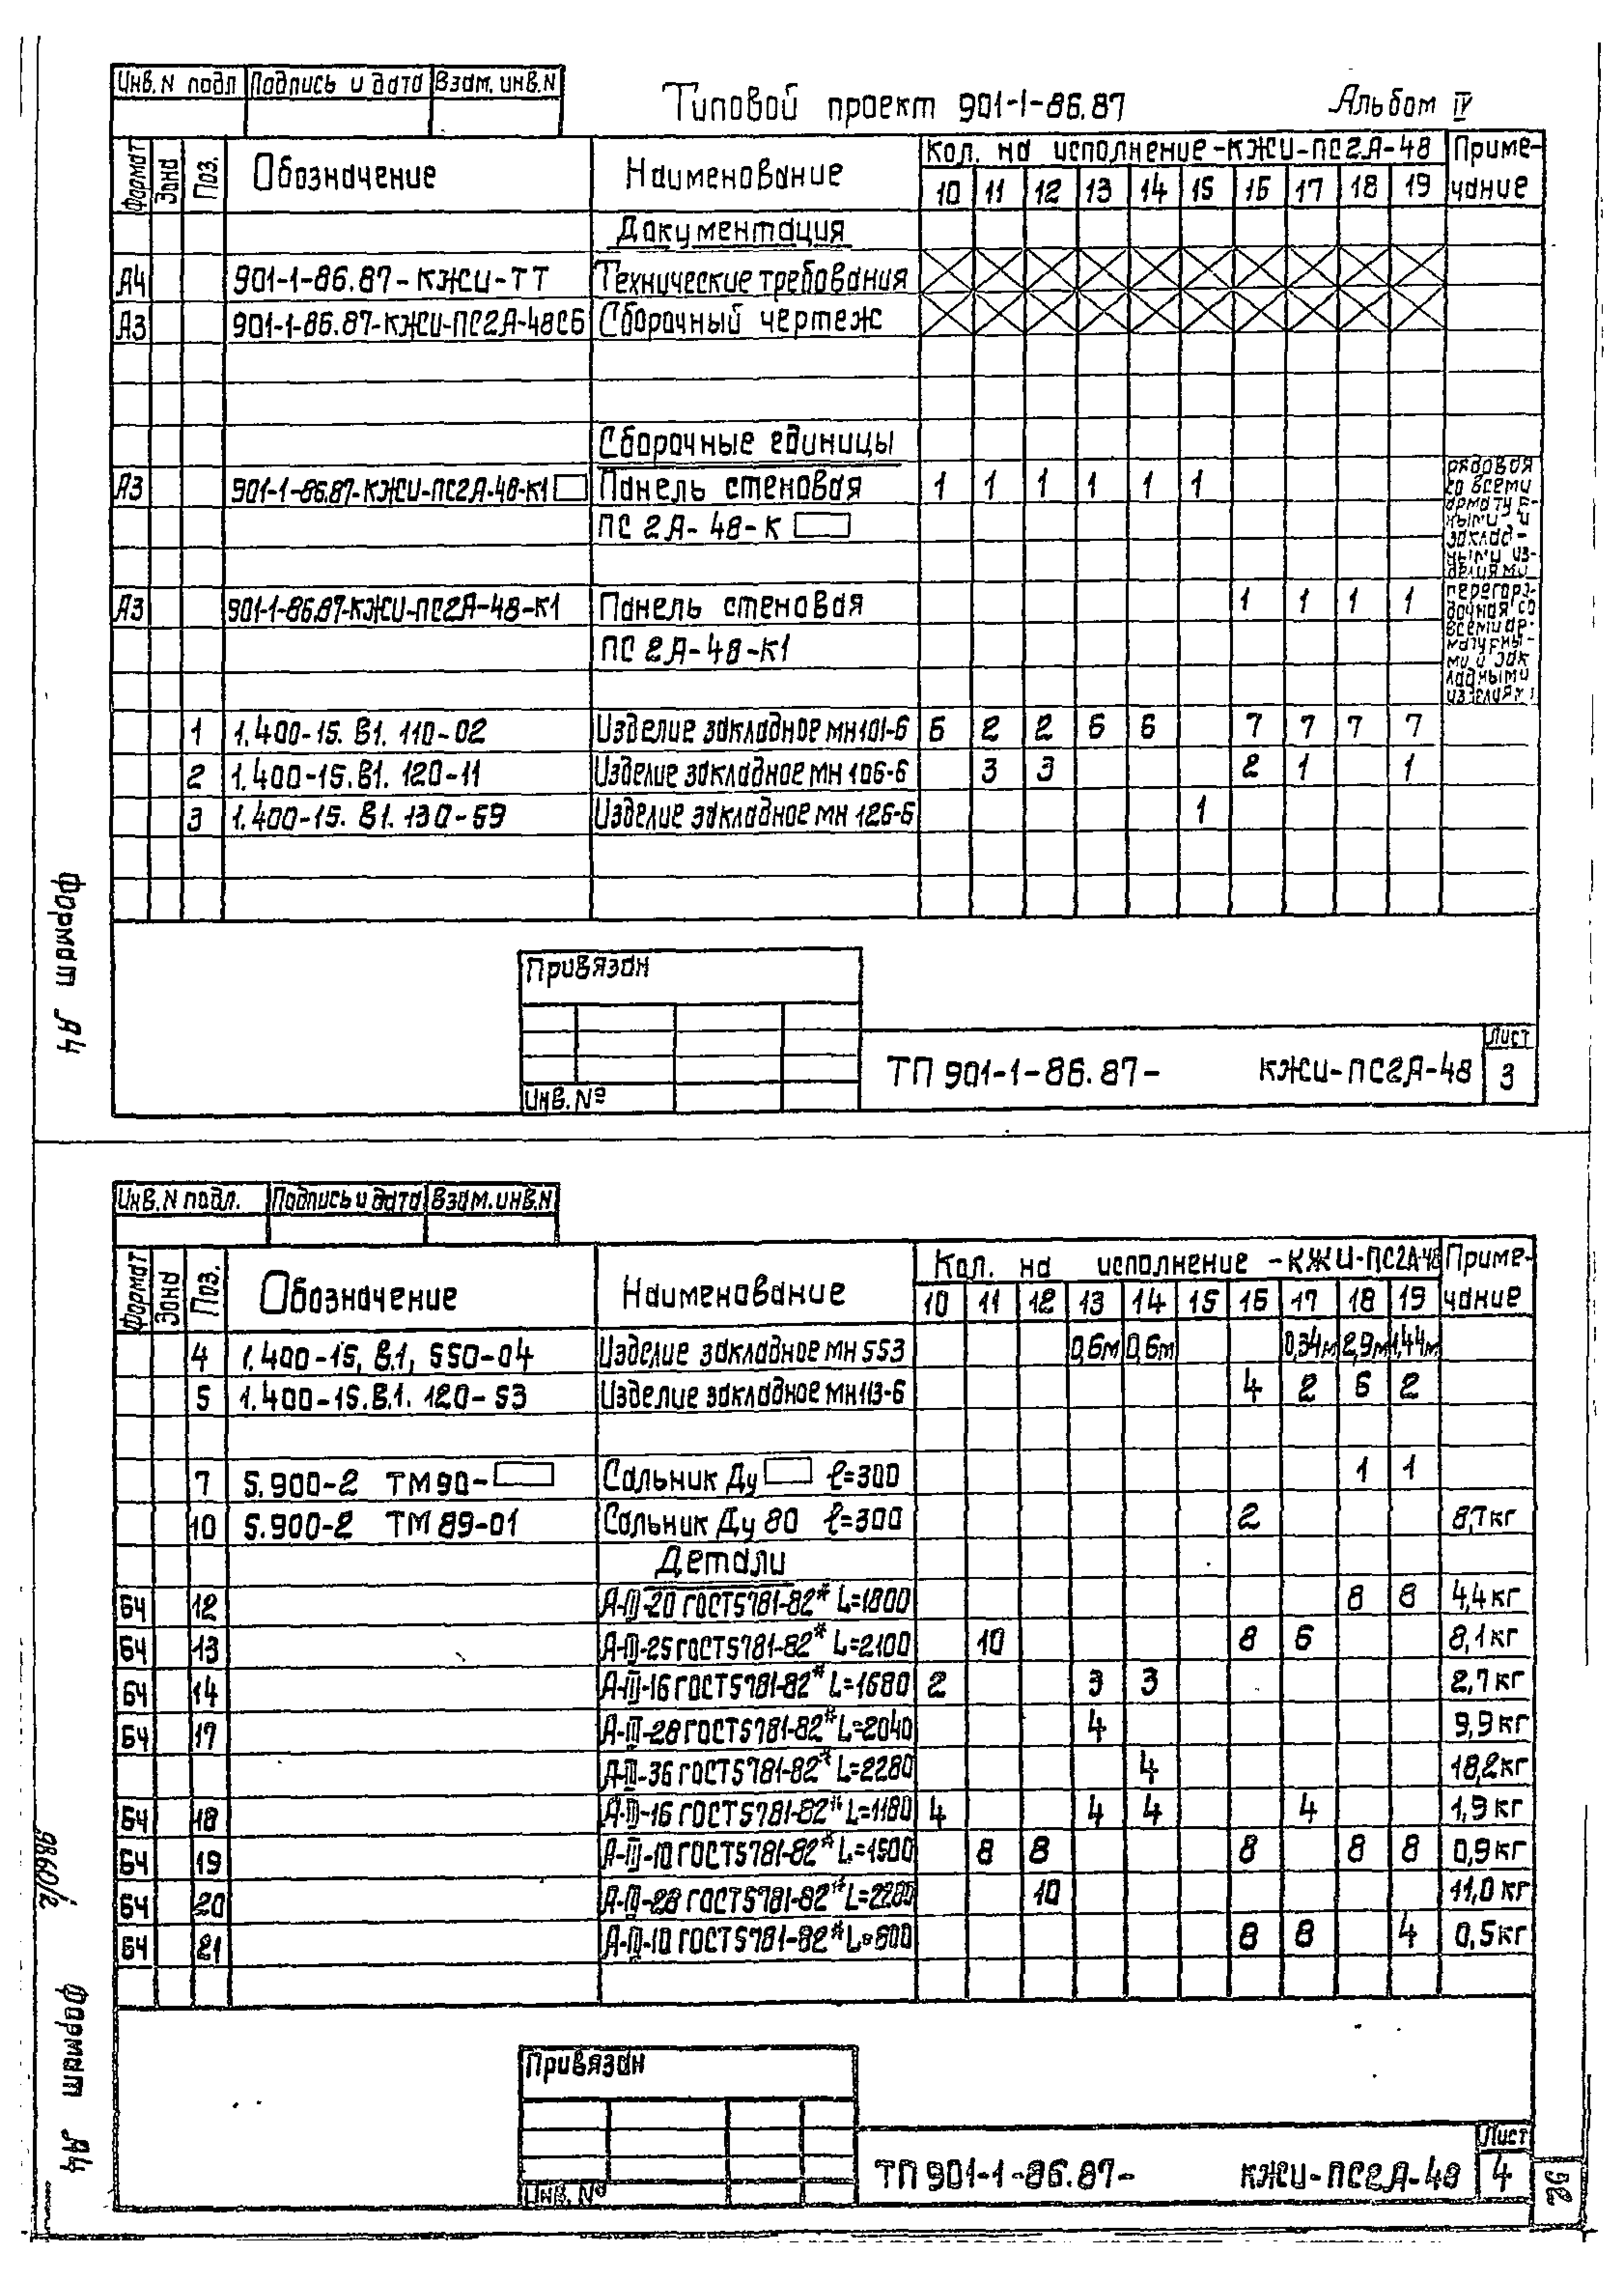 Инв. N подл Подпись и дата Взам. инв. N
Типовой проект 901-1-86.87 Альбом IV
Формат Зона Поз. Обозначение Наименование Кол. на исполнение -КЖИ-ПС2А-48 Приме-
10 11 12 13 14 15 16 17 18 19 чание
Документация
А4 901-1-86.87-КЖИ-ТТ Технические требования
А3 901-1-86.87-КЖИ-ПС2А-48СБ Сборочный чертеж
Сборочные единицы
А3 901-1-86.87-КЖИ-ПС2А-48-К1 Панель стеновая 1 1 1 1 1 1
ПС 2А-48-К
рядовая
со всеми
арматур-
ными и
заклад-
ными из-
делиями
А3 901-1-86.87-КЖИ-ПС2А-48-К1 Панель стеновая 1 1 1 1
ПС 2А-48-К1
перегоро-
дочная со
всеми ар-
матурны-
ми и зак
ладными
изделиями
1 1.400-15. В1. 110-02 Изделие закладное МН101-6 6 2 2 6 6 7 7 7 7
2 1.400-15. В1. 120-11 Изделие закладное МН 106-6 3 3 2 1 1
3 1.400-15. В1. 130-59 Изделие закладное МН 126-6 1
Формат А4
Привязан
Инв. №
ТП 901-1-86.87- КЖИ-ПС2А-48
Лист
3
Инв. N подл. Подпись и дата Взам. инв. N
Формат Зона Поз. Обозначение Наименование Кол. на исполнение -КЖИ-ПС2А-48 Приме-
10 11 12 13 14 15 16 17 18 19 чание
4 1.400-15, В.1, 550-04 Изделие закладное МН 553 0,6м 0,6м 0,34м 2,9м 1,44м
5 1.400-15. В.1. 120-53 Изделие закладное МН113-6 4 2 6 2
7 5.900-2 ТМ90- Сальник Ду ℓ=300 1 1
10 5.900-2 ТМ 89-01 Сальник Ду 80 ℓ=300 2 8,7кг
Детали
БЧ 12 А-III-20 ГОСТ5781-82* L=1800 8 8 4,4кг
БЧ 13 А-III-25 ГОСТ5781-82* L=2100 10 8 6 8,1кг
БЧ 14 А-III-16 ГОСТ5781-82* L=1680 2 3 3 2,7кг
БЧ 17 А-III-28 ГОСТ5781-82* L=2040 4 9,9кг
А-III-36 ГОСТ5781-82* L=2280 4 18,2кг
БЧ 18 А-III-16 ГОСТ5781-82* L=1180 4 4 4 4 1,9кг
БЧ 19 А-III-10 ГОСТ5781-82* L=1500 8 8 8 8 8 0,9кг
БЧ 20 А-III-28 ГОСТ5781-82* L=2280 10 11,0кг
БЧ 21 А-III-10 ГОСТ5781-82* L=800 8 8 4 0,5кг
9860/2
Формат А4
Привязан
Инв. №
ТП 901-1-86.87- КЖИ-ПС2А-48
Лист
4